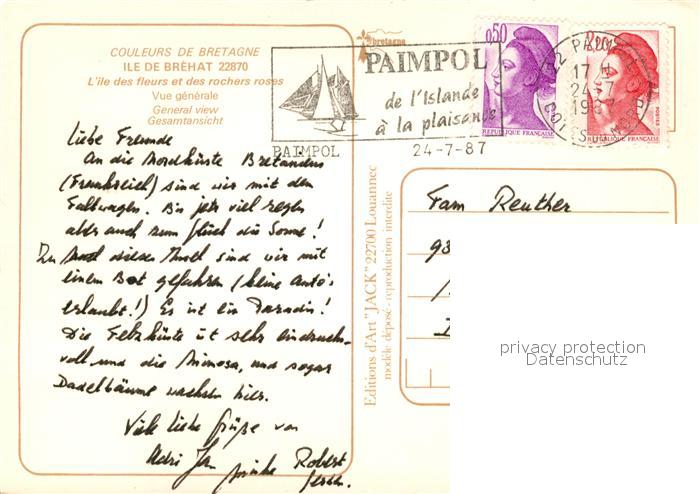 COULEURS DE BRETAGNE
ILE DE BRÉHAT 22870
L'île des fleurs et des rochers roses
Vue générale
General view
Gesamtansicht
bretagne
PAIMPOL
de l'Islande
à la plaisance
PAIMPOL
24-7-87
0,50
RÉPUBLIQUE FRANÇAISE
2,20
RÉPUBLIQUE FRANÇAISE
22 PAIMPOL
17 H
24-7
1987
COTES DU NORD
Liebe Freunde
An die Nordküste
(Frankreich) sind wir mit den
Faltwagen. Bis jetz viel regen
aber auch zum glück die Sonne!
Zu diesen sind wir mit
einem Bot gefahren (keine Auto's
erlaubt!) Es ist ein Paradis!
Die Felzküste ist sehr eindruck-
voll und die Mimosa, und sogar
Dadelbäume wachsen hier.
Viele liebe grüße von
Jan Robert
Editions d'Art "JACK" 22700 Louannec
modèle déposé - reproduction interdite
Fam Reuther
privacy protection
Datenschutz